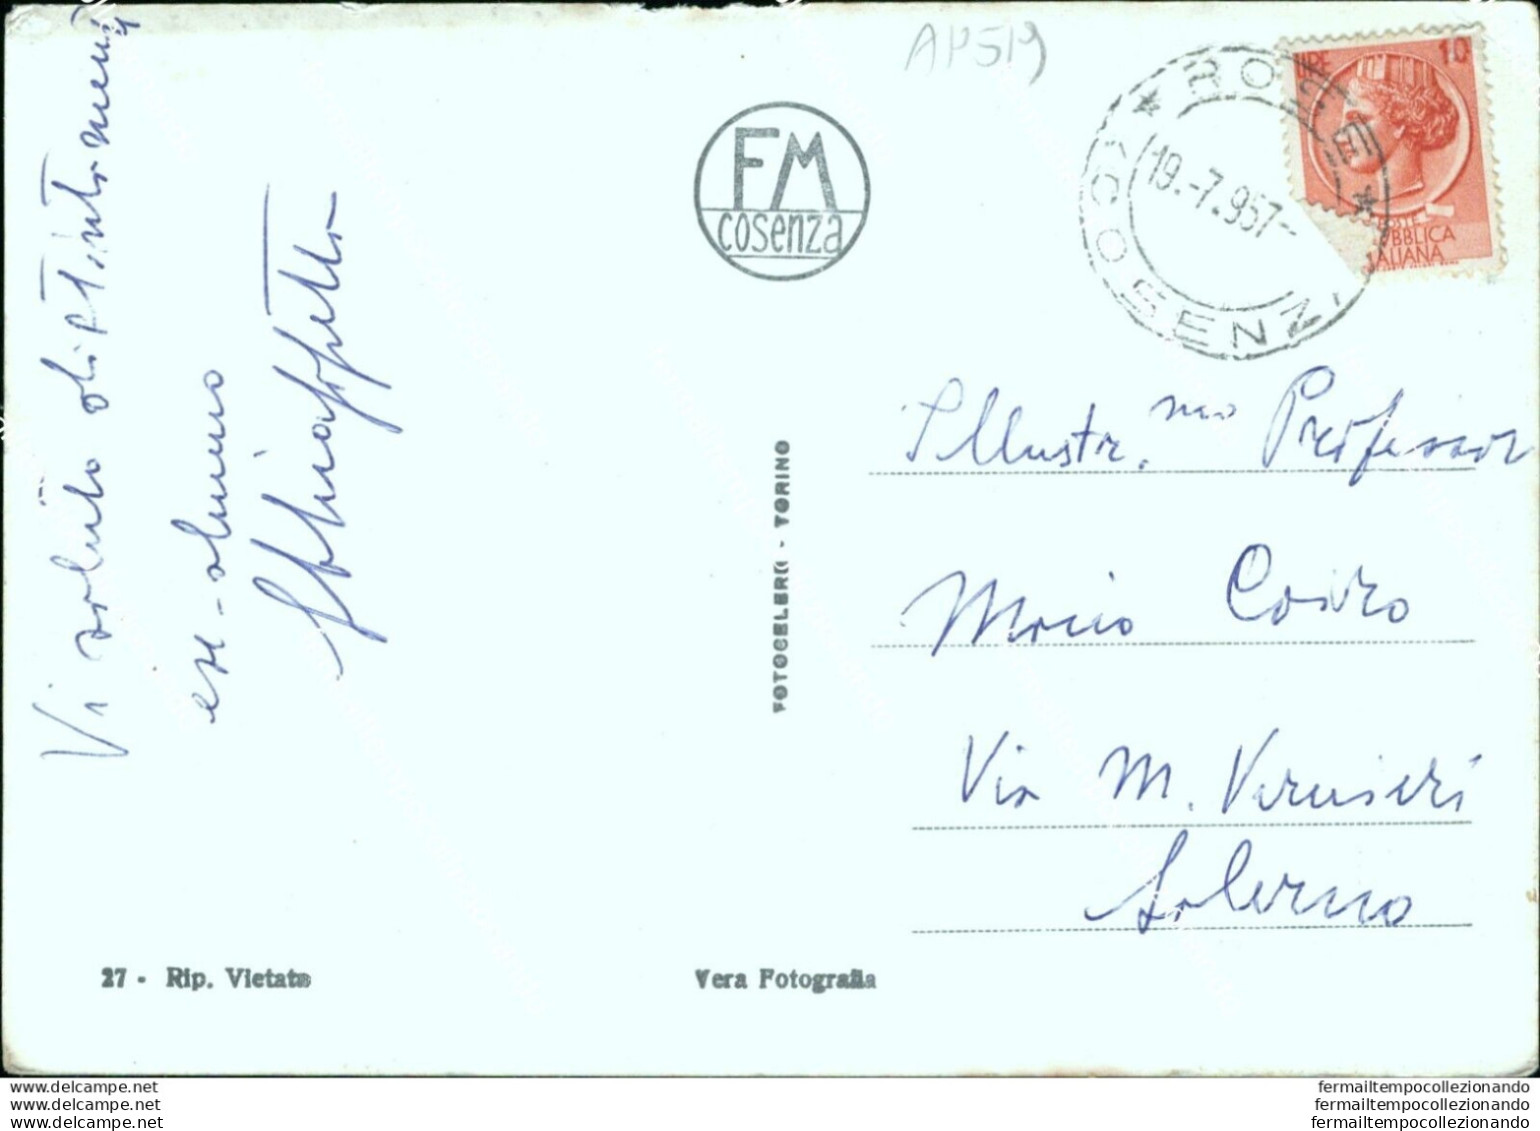 AP519
LIRE 10
REPUBBLICA
ITALIANA
* ROSE *
(COSENZA
19.-7.957-
FM
cosenza
Vi saluto distintamente
ex-alunno
Illustr.mo Professor
Mario
Via M. Vernieri
Salerno
FOTOCELERE - TORINO
27 - Rip. Vietata
Vera Fotografia
www.delcampe.net
www.delcampe.net
www.delcampe.net
fermailtempocollezionando
fermailtempocollezionando
fermailtempocollezionando